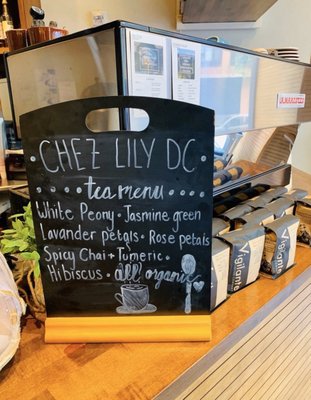 CHEZ LILY DC
tea menu
White Peony • Jasmine green
Lavander petals • Rose petals
Spicy Chai + Tumeric •
Hibiscus • all organic
Vigilante
Vigilante